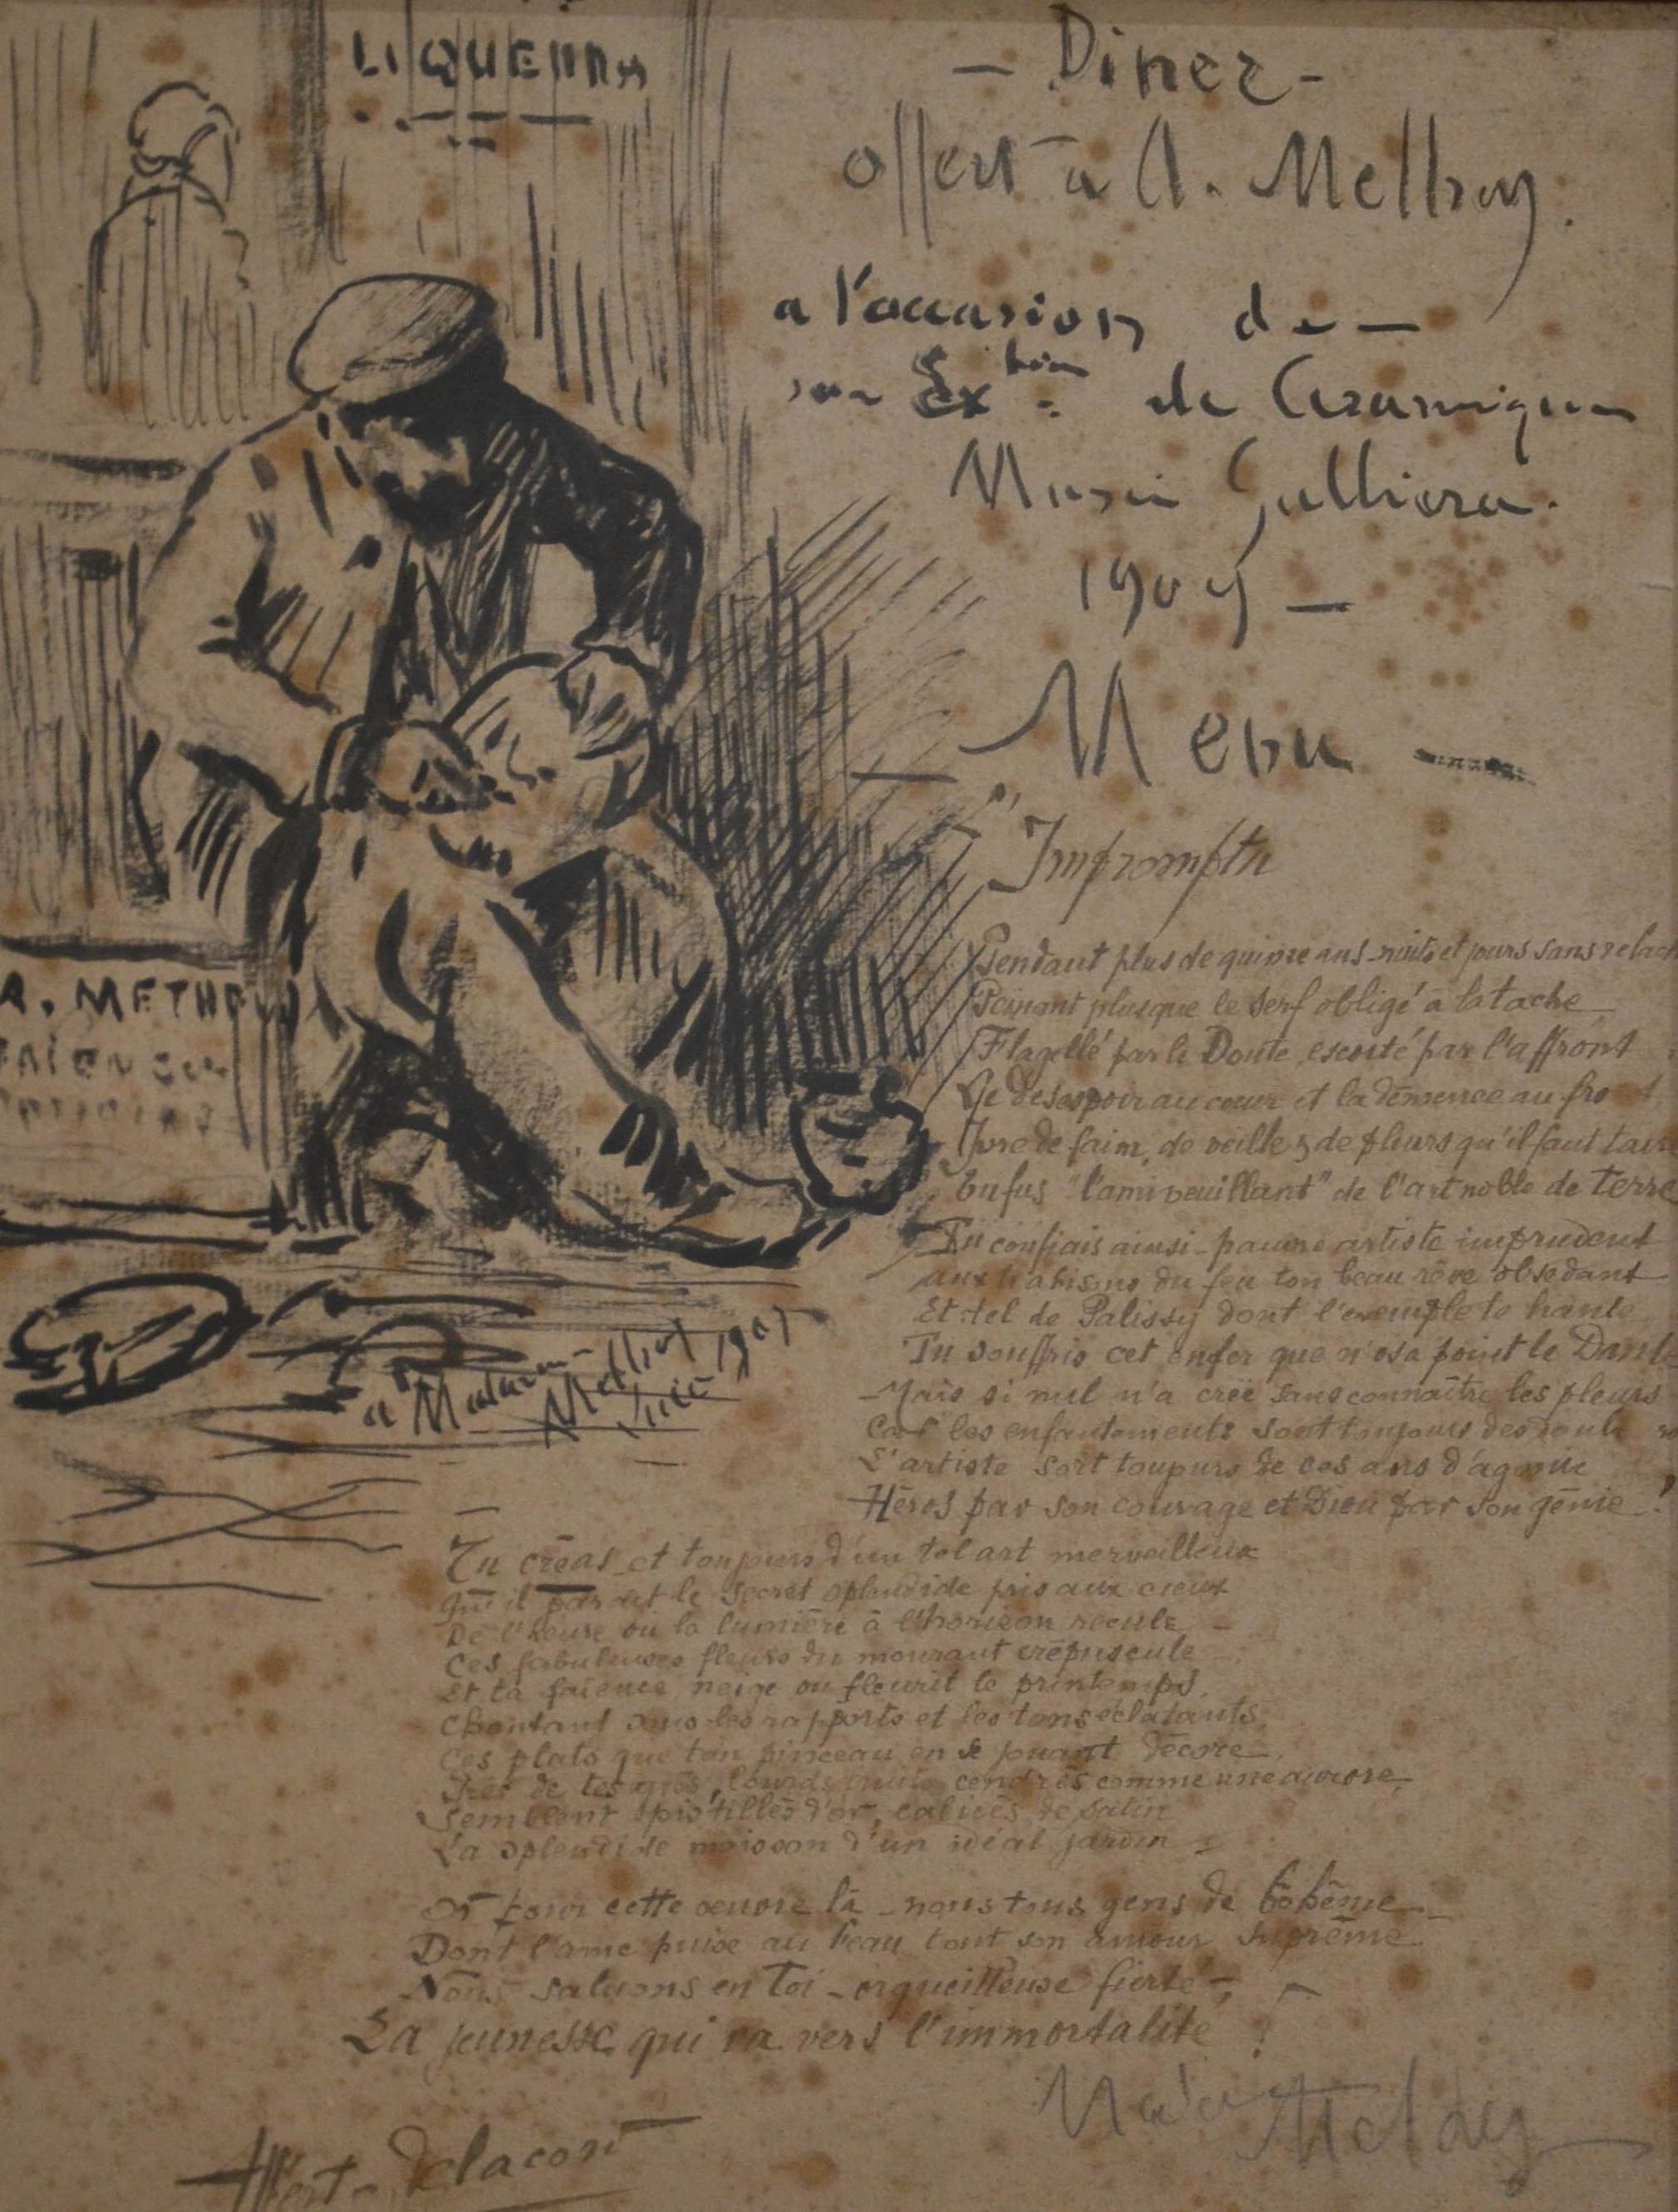 - Diner -
offert à A. Methey.
a l'occasion de —
son Ex^tion de Ceramique
Musée Galliera.
1909 —
Menu —
A. METHEY
à Madame
Methey
1909
Impromptu
Pendant plus de quinze ans - nuits et jours sans relach
Peinant plus que le serf obligé à la tache
Flagellé par le Doute, excité par l'affront
Le desespoir au coeur et la démence au fro t
Ivre de faim, de veille, de pleurs qu'il faut taire
Tu fus "l'ami veuillant" de l'art noble de terre
Tu confiais ainsi - pauvre artiste imprudent
aux trahisons du feu ton beau rêve obsédant
Et tel de Palissy dont l'exemple te hante
Tu souffris cet enfer que n'osa point le Dante
Mais si nul n'a créé sans connaître les pleurs
Car les enfantements sont toujours des
L'artiste sort toujours de ces ans d'agonie
Héros par son courage et Dieu par son génie !
Tu créas et toujours d'un tel art merveilleux
qu'il parait le secret splendide pris aux cieux
De l'heure où la lumière à l'horizon recule
Ces fabuleuses fleurs du mourant crépuscule
Et ta faïence, neige où fleurit le printemps,
Chantant sous les rapports et les tons éclatants
Ces plats que ton pinceau en se jouant décore
de tes cendrés comme une aurore,
Semblent pistillés d'or, calices de satin
La splendide moisson d'un idéal jardin
Or pour cette oeuvre là - nous tous gens de bohême
Dont l'ame puise au beau tout son amour suprême
Nous saluons en Toi - orgueilleuse fierté -
La jeunesse qui va vers l'immortalité !
Albert - Delacour